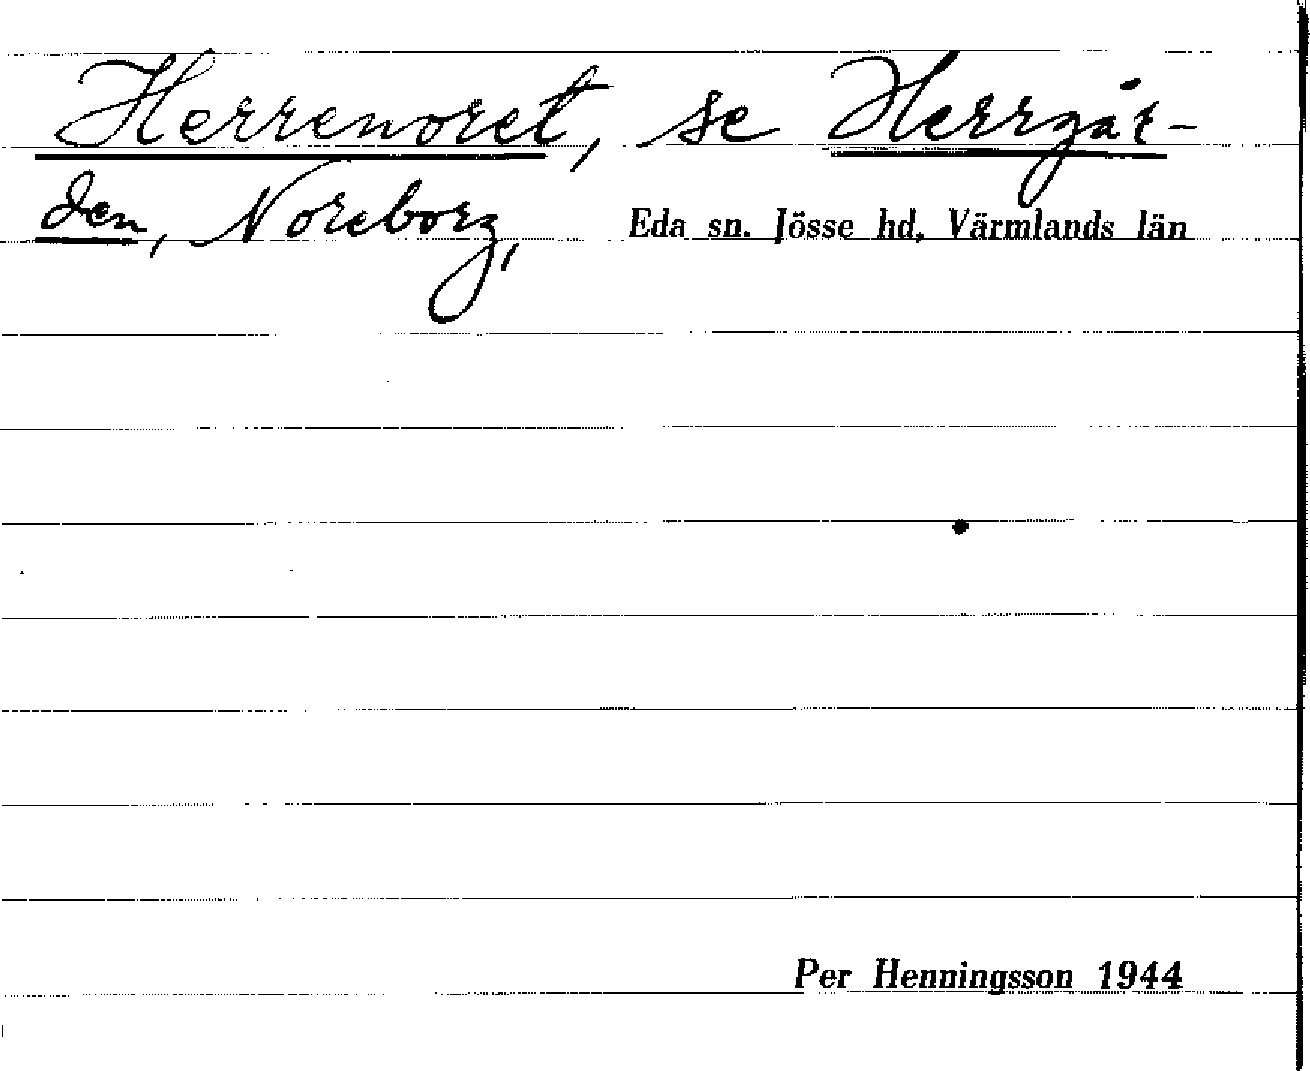 Herrenoret, se Herrgår-
den, Noreborg, Eda sn. Jösse hd, Värmlands län
Per Henningsson 1944